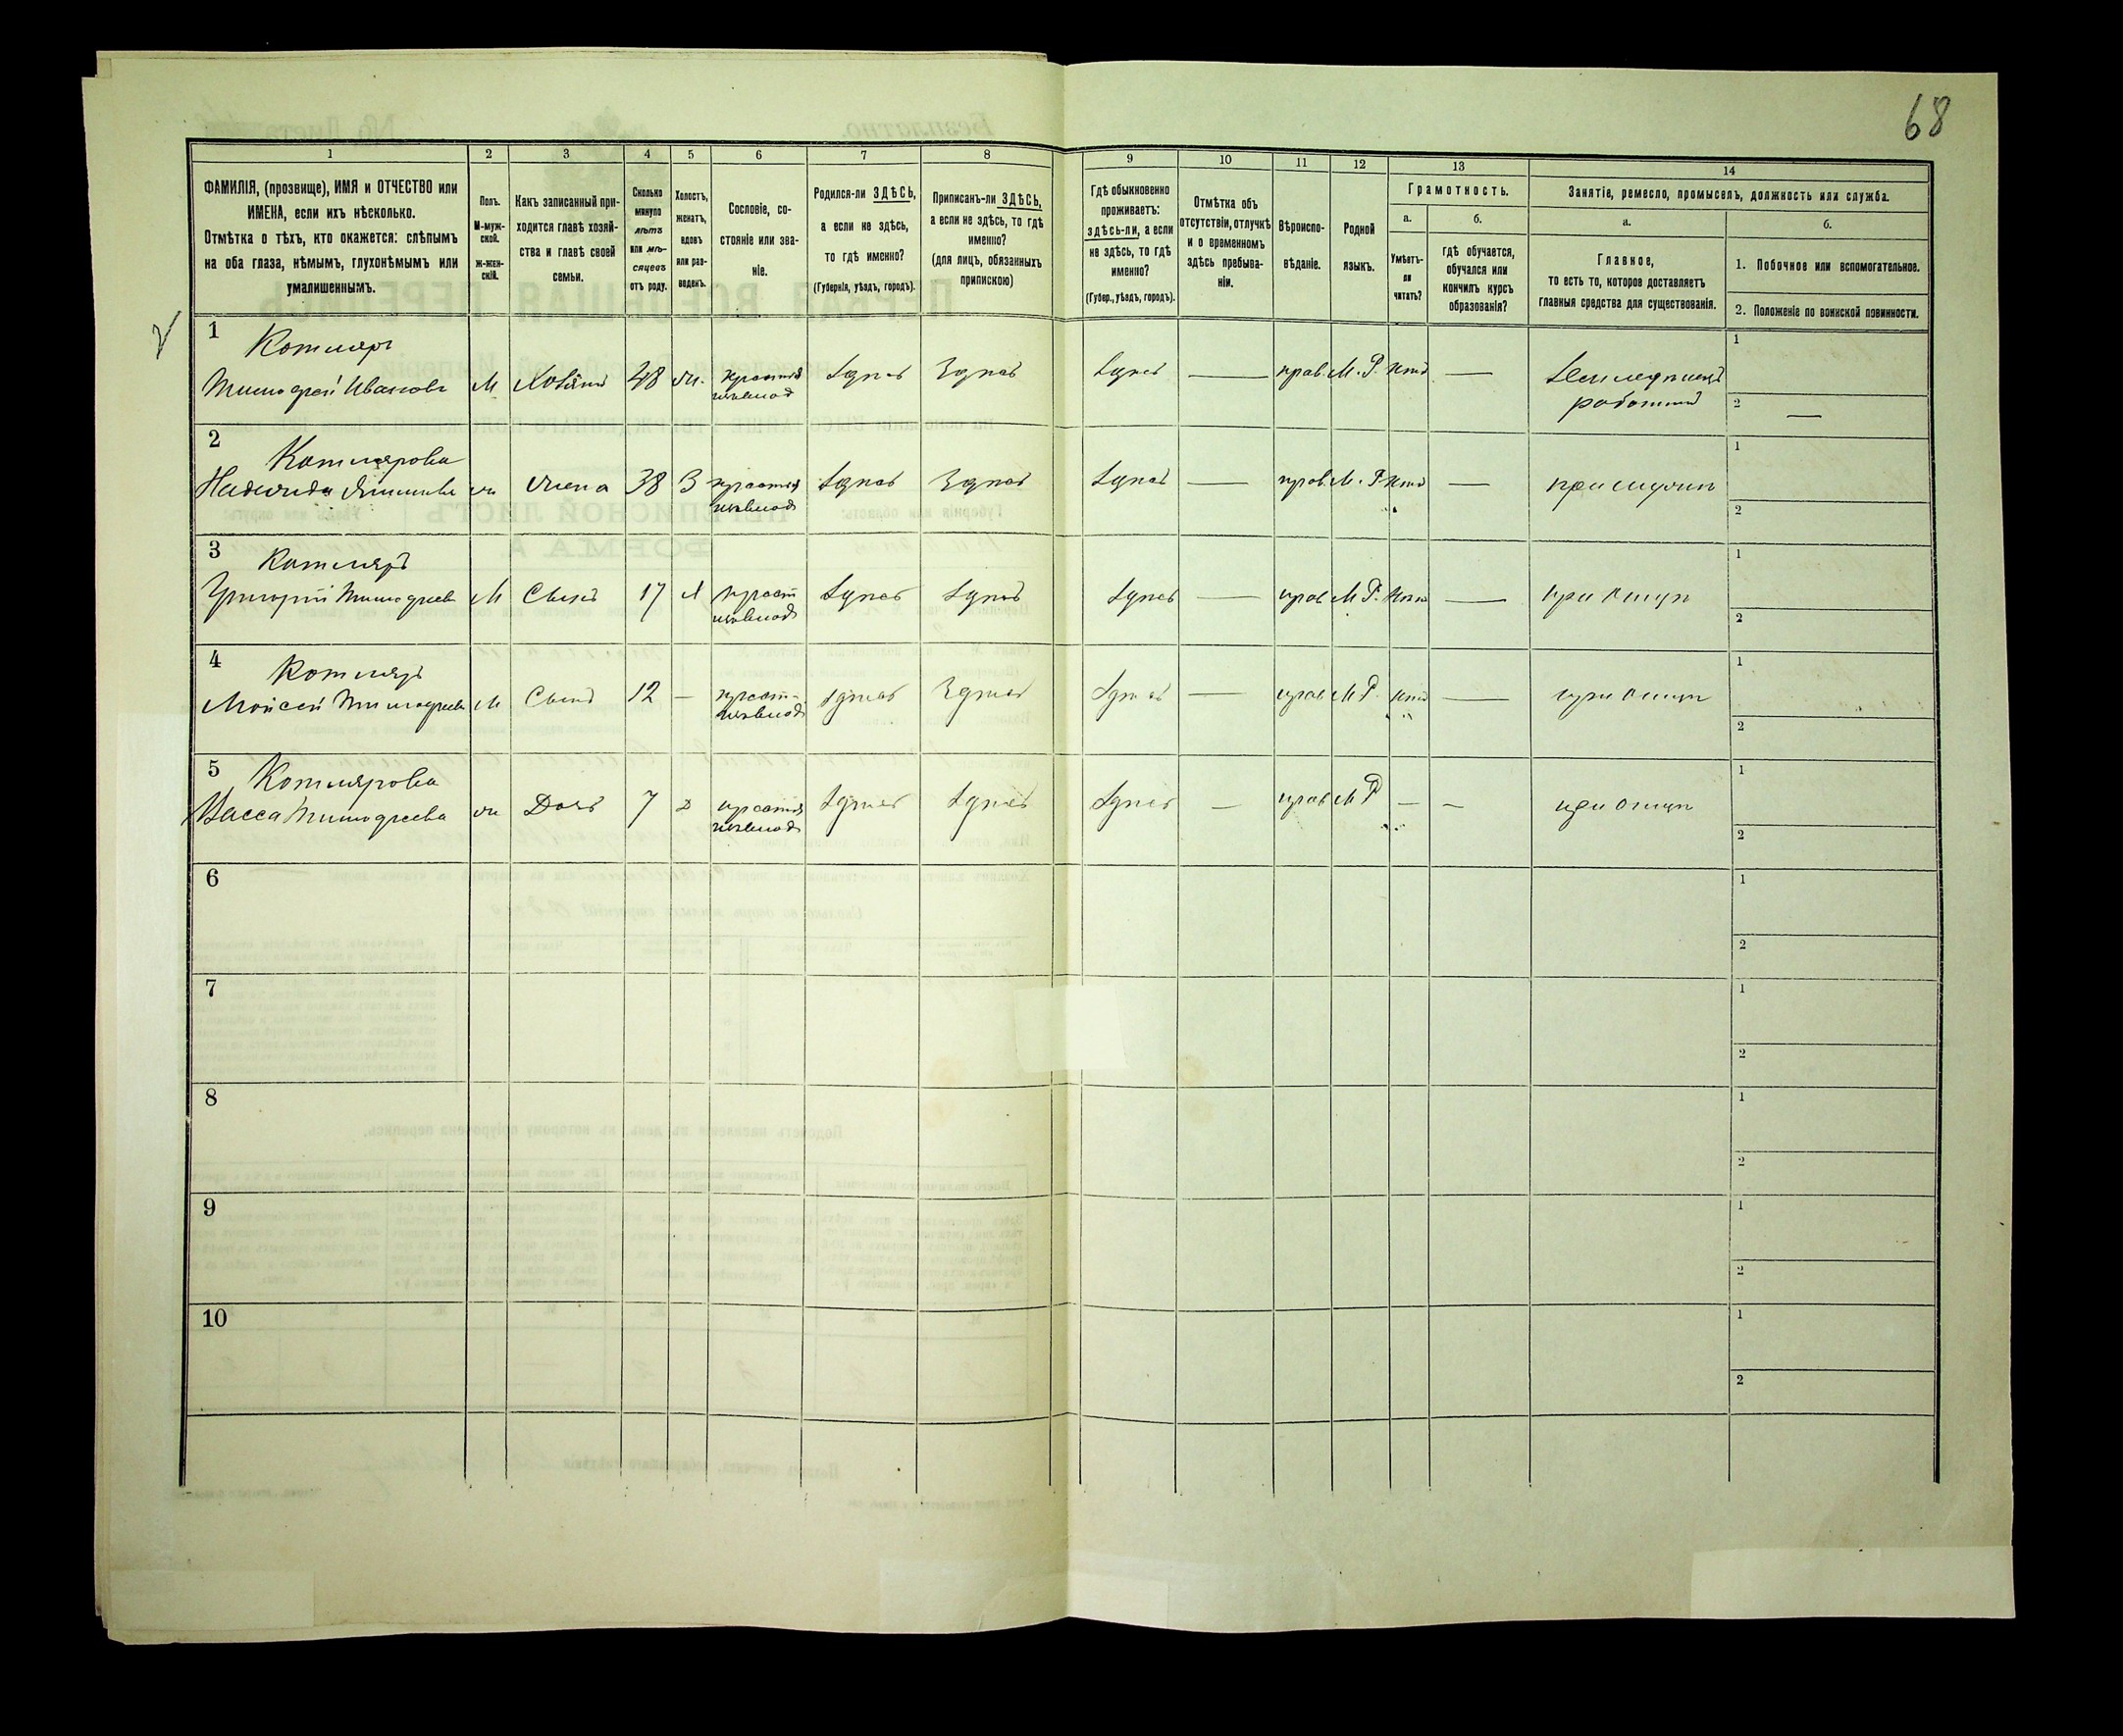 68
1
2
3
4
5
6
7
8
9
10
11
12
13
14
ФАМИЛІЯ, (прозвище), ИМЯ и ОТЧЕСТВО или
ИМЕНА, если ихъ нѣсколько.
Отмѣтка о тѣхъ, кто окажется: слѣпымъ
на оба глаза, нѣмымъ, глухонѣмымъ или
умалишеннымъ.
Полъ.
М-муж-
ской.
Ж-жен-
скій.
Какъ записанный при-
ходится главѣ хозяй-
ства и главѣ своей
семьи.
Сколько
минуло
лѣтъ
или мѣ-
сяцевъ
отъ роду.
Холостъ,
женатъ,
вдовъ
или раз-
веденъ.
Сословіе, со-
стояніе или зва-
ніе.
Родился-ли ЗДѢСЬ,
а если не здѣсь,
то гдѣ именно?
(Губернія, уѣздъ, городъ).
Приписанъ-ли ЗДѢСЬ,
а если не здѣсь, то гдѣ
именно?
(для лицъ, обязанныхъ
припискою)
Гдѣ обыкновенно
проживаетъ:
здѣсь-ли, а если
не здѣсь, то гдѣ
именно?
(Губер., уѣздъ, городъ).
Отмѣтка объ
отсутствіи, отлучкѣ
и о временномъ
здѣсь пребыва-
ніи.
Вѣроиспо-
вѣданіе.
Родной
языкъ.
Грамотность.
а.
Умѣетъ-
ли
читать?
б.
гдѣ обучается,
обучался или
кончилъ курсъ
образованія?
Занятіе, ремесло, промыселъ, должность или служба.
а.
Главное,
то есть то, которое доставляетъ
главныя средства для существованія.
б.
1. Побочное или вспомогательное.
2. Положеніе по воинской повинности.
1
Котляръ
Тимофей Ивановъ М Хозяинъ 48 ж. Здѣсь Здѣсь Здѣсь — прав. М. Р. нѣтъ —
1
2 —
2
Котлярова
Надежда ж жена 38 З Здѣсь Здѣсь Здѣсь — прав. М. Р нѣтъ — при мужѣ
1
2
3
Котляръ
Григорій Тимофеевъ М Сынъ 17 Х Здѣсь Здѣсь Здѣсь — прав М Р. нѣтъ — при отцѣ
1
2
4
Котляръ
Мойсей Тимофеевъ М Сынъ 12 — Здѣсь Здѣсь Здѣсь — прав М Р. нѣтъ — при отцѣ
1
2
5
Котлярова
Васса Тимофеева ж Дочь 7 Здѣсь Здѣсь Здѣсь — прав М Р — — при отцѣ
1
2
6
1
2
7
1
2
8
1
2
9
1
2
10
1
2